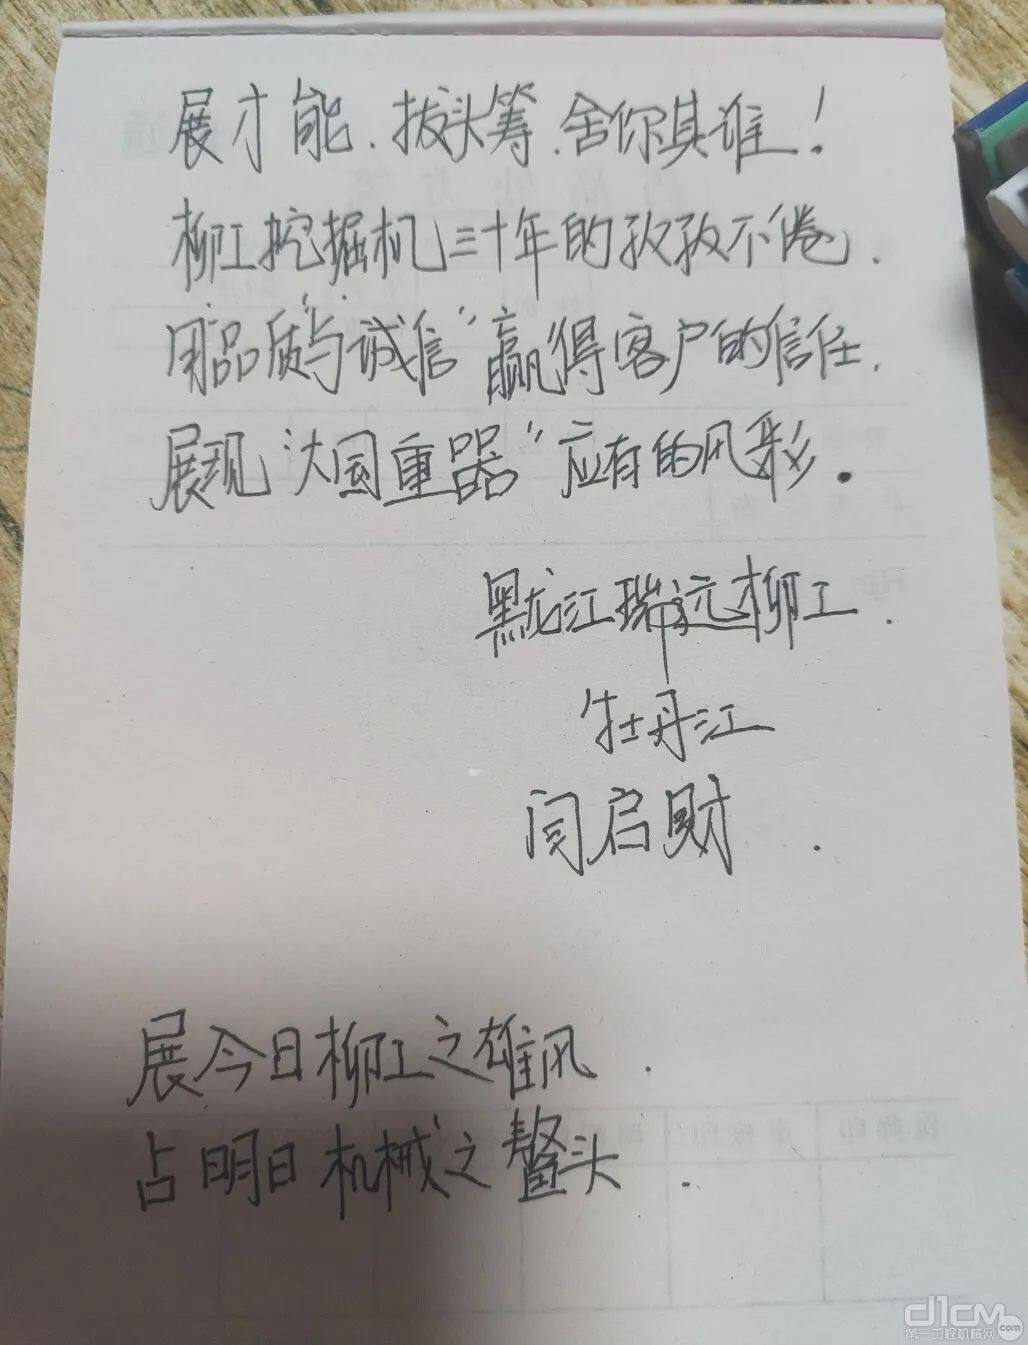 展才能、拔头筹、舍你其谁！
柳工挖掘机三十年的孜孜不倦.
用“品质与诚信”赢得客户的信任.
展现“大国重器”应有的风彩.
黑龙江瑞远柳工.
牡丹江
闫启财.
展今日柳工之雄风.
占明日机械之鳌头.
d1cm.com
第一工程机械网